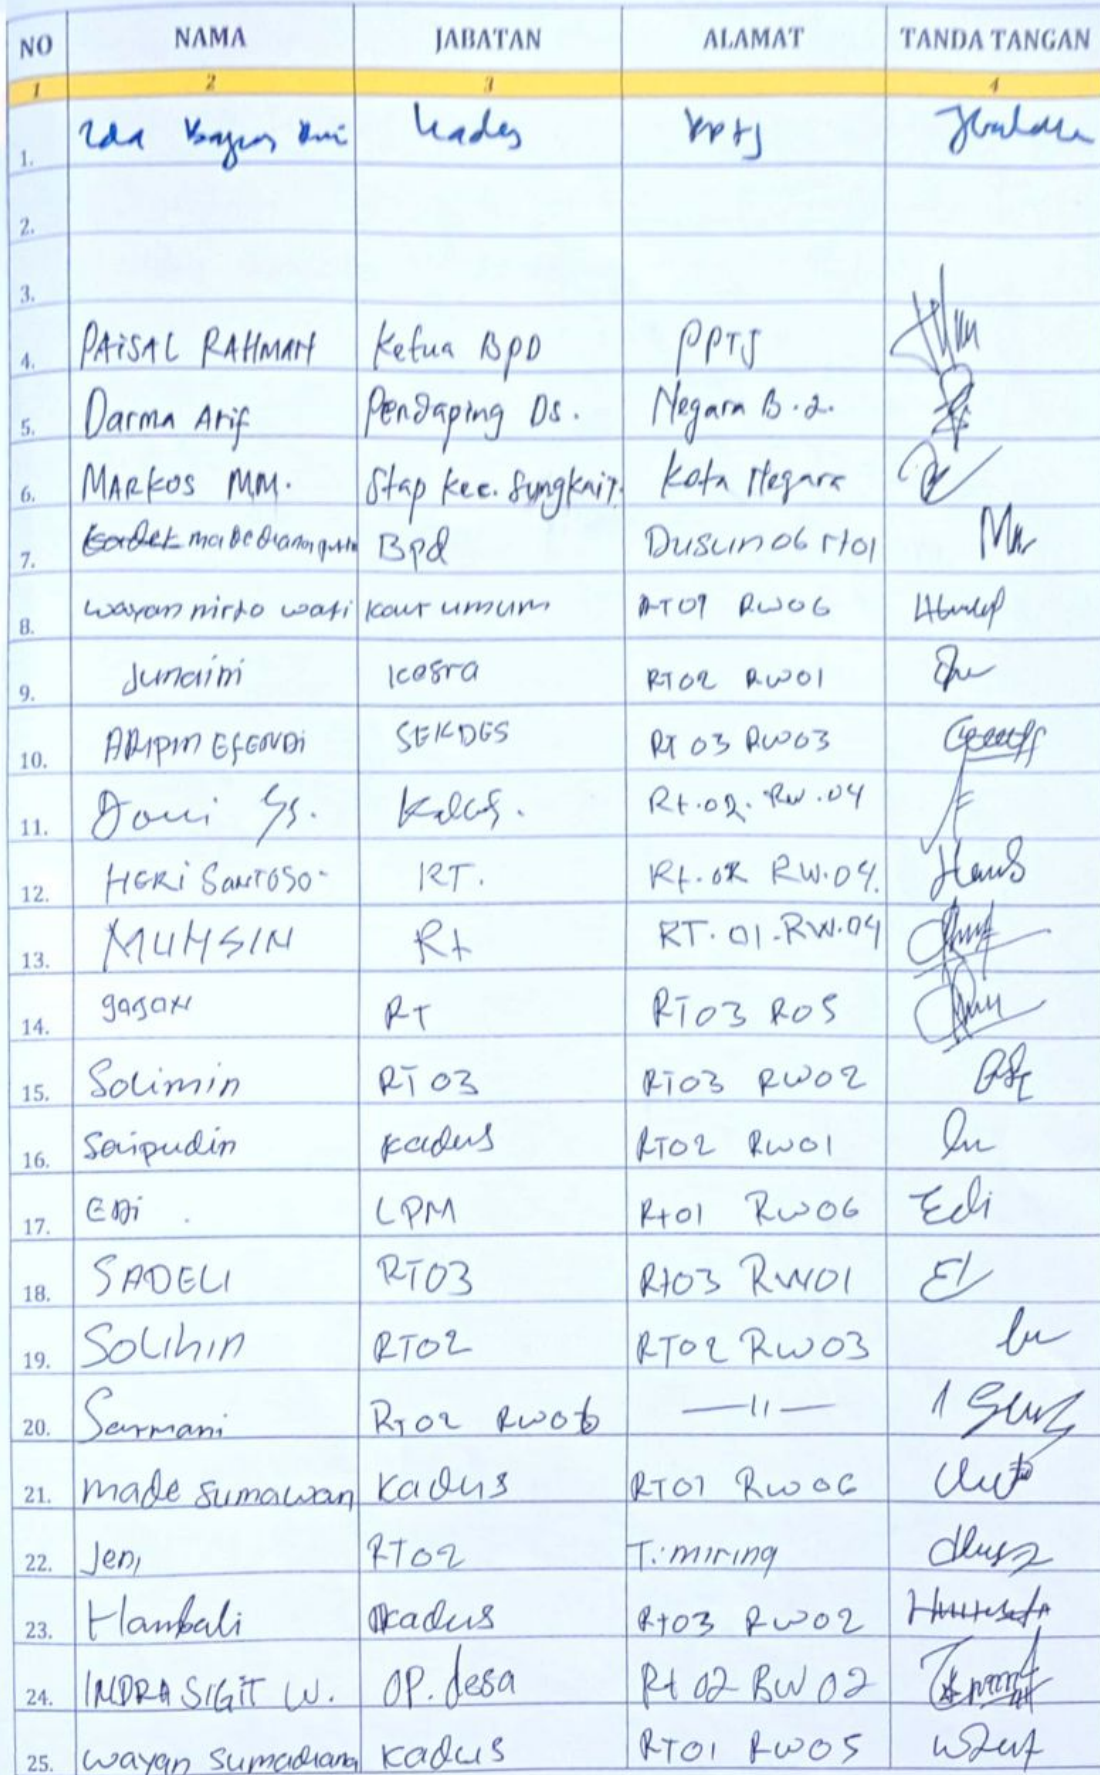 NO NAMA JABATAN ALAMAT TANDA TANGAN
1 2 3 4
1. Kades
2.
3.
4. PAISAL RAHMAN Ketua BPD PPTJ
5. Darma Arif Pendaping Ds. Negara B.2.
6. MARKOS MM. Stap kec. Sungkai Kota Negara
7. made Bpd Dusun 06 rt01
8. wayan nirto wati kaur umum RT01 RW06
9. Junaini kesra RT02 RW01
10. ARIPIN EFENDI SEKDES RT 03 RW03
11. Rt.02. Rw.04
12. HERI SANTOSO RT. Rt. RW.04.
13. MUHSIN Rt RT.01.RW.04
14. gagan RT RT03 R05
15. Solimin RT 03 RT03 RW02
16. Saipudin kadus RT02 RW01
17. EDi LPM Rt01 RW06 Edi
18. SADELI RT03 Rt03 RW01
19. Solihin RT02 RT02 RW03
20. Sarmani RT02 RW06 —11—
21. made sumawan kadus RT01 RW06
22. Jeni RT02 T. miring
23. Hambali kadus Rt03 RW02
24. INDRA SIGIT W. OP. desa Rt 02 RW 02
25. wayan sumadiana kadus RT01 RW05